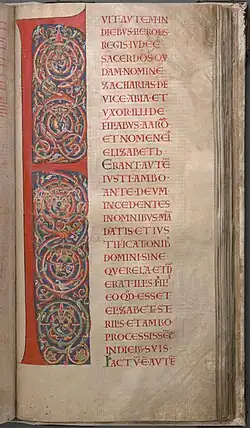 FVIT AVTEM IN
DIEBVS HERODIS
REGIS IVDEE
SACERDOS QVI
DAM NOMINE
ZACHARIAS DE
VICE ABIA ET
VXOR ILLI DE
FILIABVS AARŌ
ET NOMEN EI
ELIZABETH
ERANT AVTĒ
IVSTI AMBO
ANTE DEVM
INCEDENTES
IN OMNIBVS MĀ
DATIS ET IVS
TIFICATIONIB
DOMINI SINE
QVERELA ET
ERAT ILLIS FILI
EO QD ESSET
ELIZABET STE
RILIS ET AMBO
PROCESSISSENT
IN DIEB SVIS
FACTV E AVTĒ